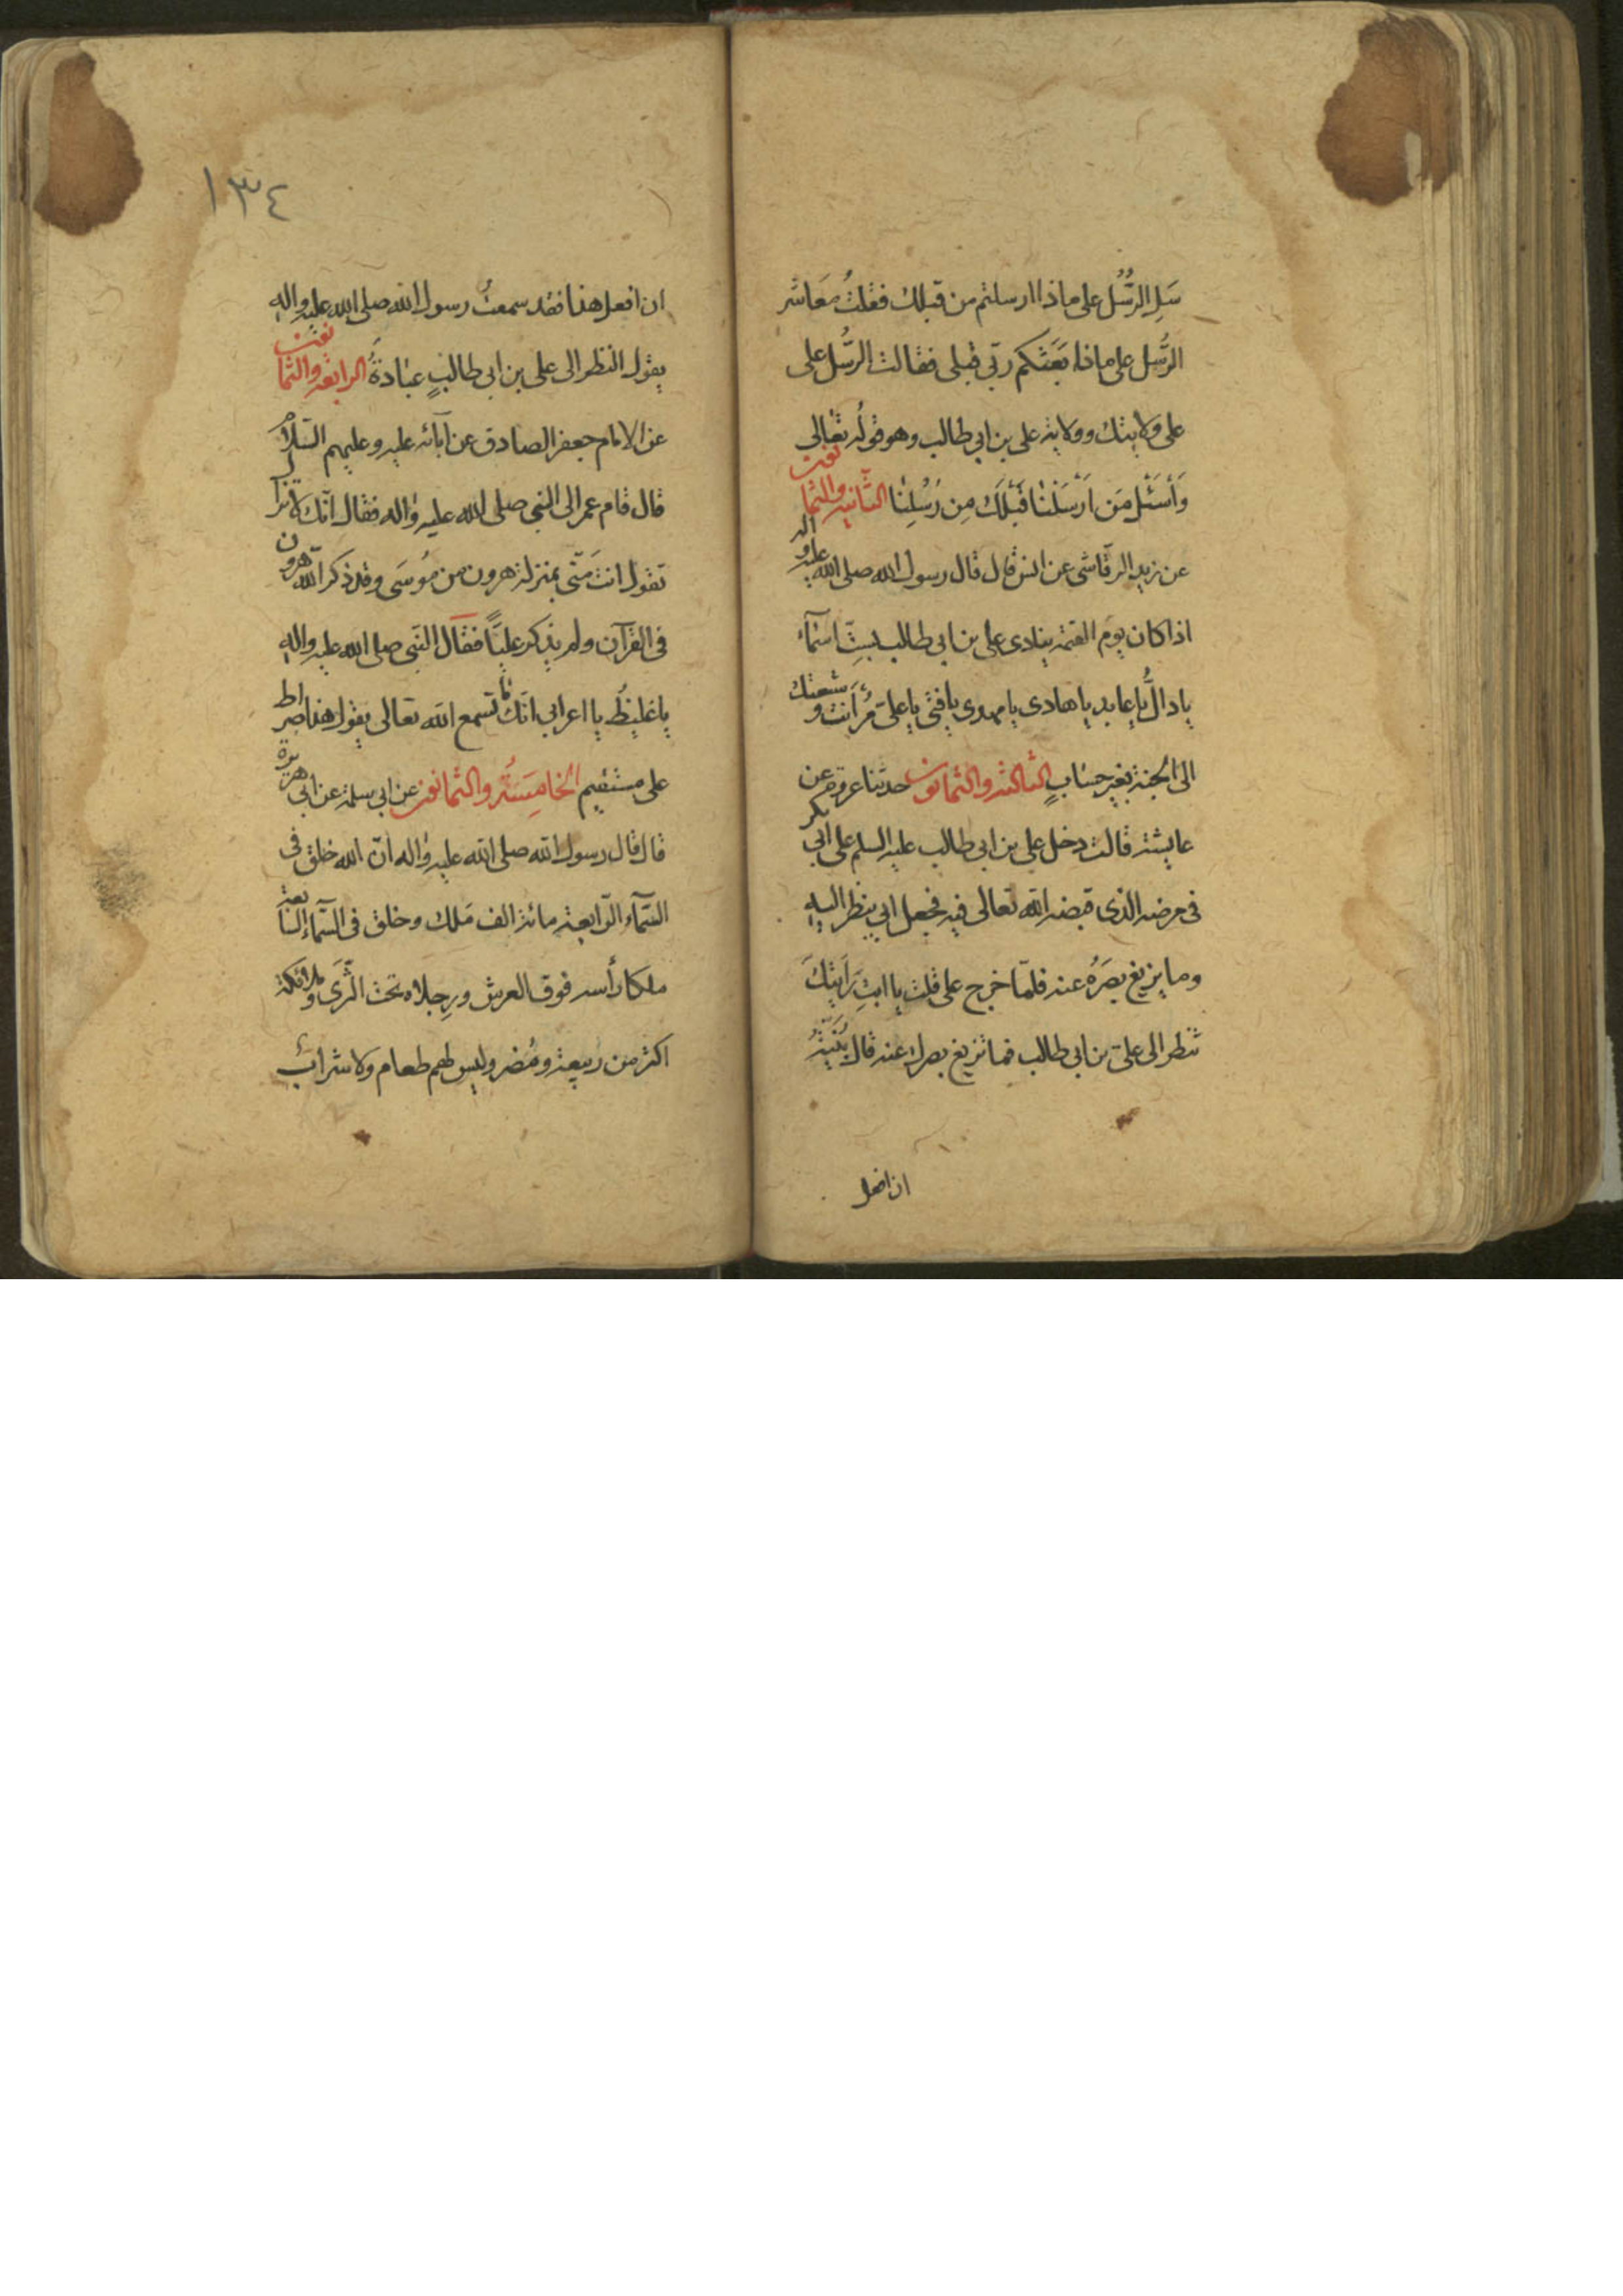 سَلِ الرُّسُل على ماذا ارسلتم من قبلك فقلتُ مَعَاشر
الرُّسل على ماذا بَعَثكم ربّى قبلى فقالت الرسُّل على
على ولايتك وولاية على بن ابى طالب وهو قولُه تعالى
وَأسْئَل مَن اَرْسَلْنَا قَبْلَكَ مِن رُسُلِنَا الثانيه والثمانون
عن يزيد الرقّاشى عن انس قال قال رسول الله صلى الله عليه واله
اذا كان يوم القيمة ينادى على بن ابى طالب بستِّ اسمآء
يا دالُّ يا عابد يا هادى يا مهدى يا فتى يا على مُرّ انت وشيعتك
الى الجنة بغير حسَابٍ الثالثه والثمانون حدثنا عروة عن
عايشة قالت دخل على بن ابى طالب عليه السلم على ابى بكر
فى مرضه الذى قبضه الله تعالى فيه فجعل ابى ينظر اليه
وما يزيغ بصَرُه عنه فلمّا خرج على قلت يا ابتِ رَاَيتكَ
تنظر الى علىّ بن ابى طالب فما تزيغ بصرك عنه قال بُنَيّةُ
ان افعل
١٣٤
ان افعل هذا فقد سمعتُ رسول الله صلى الله عليه واله
يقول النظر الى على بن ابى طالبٍ عبَادةُ الرابعه والثمانون
عن الامام جعفر الصادق عن آبائه عليه وعليهم السّلام
قال قام عمر الى النبى صلى الله عليه واله فقال انّك لا تزال
تقول انت مَنّى بمنزلة هرون من مُوسَى وقد ذكر الله هرون
فى القرآن ولم يذكر عليّاً فقال النّبى صلى الله عليه واله
يا غليظُ يا اعرابى انّك ما تسمع الله تعالى يقول هذا صراط
على مستقيم الخامِسَةُ والثمانون عن ابى سلمة عن ابى هريرة
قال قال رسول الله صلى الله عليه واله انّ الله خلق فى
السّمآء الرّابعة مائة الف مَلك وخلق فى السّمآء السّابعة
ملكا رأسه فوق العرش ورِجلاه تحت الثّرَى وملائكة
اكثر من ربيعة ومُضر وليس لهم طعام ولا شرابٌ